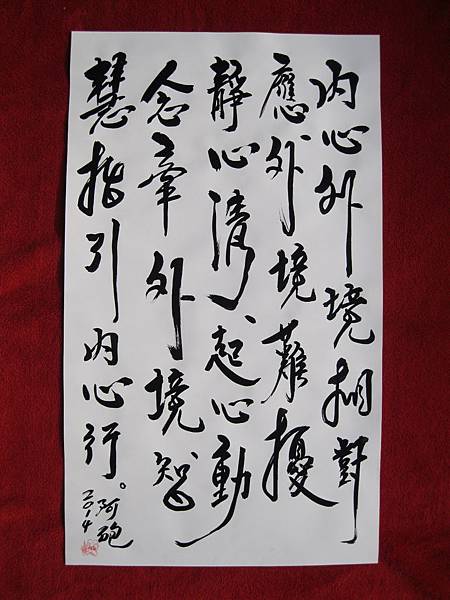 內心外境相對
應外境難擾
靜心清、起心動
念牽外境智
慧指引內心行。
2014阿砲